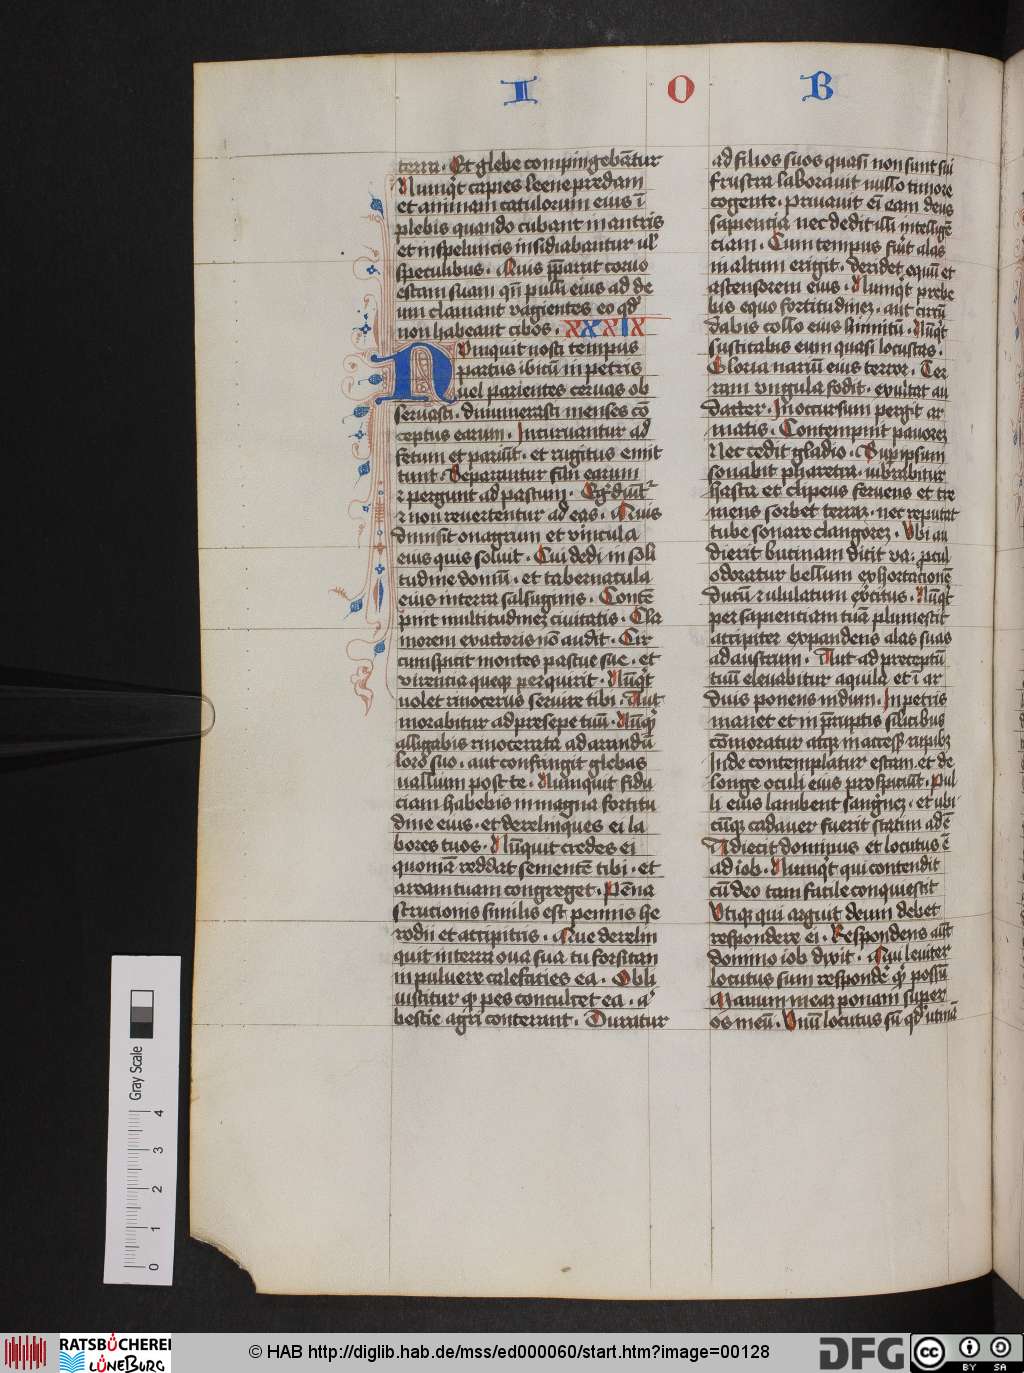 I O B
terra. Et glebe compingebātur
Nunq͛t capies leene predam
et animam catulorum eius ī
plebis quando cubant in antris
et in speluncis insidiabantur uł
speculibus. Quis p̄parat coruo
escam suam qn̄ pulli eius ad de
um clamant vagientes eo qđ
non habeant cibos. XXXIX
Nunquit nosti tempus
partus ibicū in petris
uel parientes ceruas ob
seruasti. dinumerasti menses cō
ceptus earum. Incuruantur ad
fetum et pariūt. et rugitus emit
tunt. Separantur filii earum
⁊ pergunt ad pastum. Egrediūt᷑
⁊ non reuertentur ad eas. Quis
dimisit onagrum et vincula
eius quis soluit. Cui dedi in soli
tudine domū. et tabernacula
eius in terra salsuginis. Contē
pnit multitudinez ciuitatis. Cla
morem exactoris nō audit. Cir
cumspicit montes pascue sue. et
virentia queqȝ perquirit. Nūq͛t
uolet rinocerus seruire tibi. Aut
morabitur ad presepe tuū. Nūq͛
alligabis rinocerata ad arandū
loro suo. aut confringit glebas
uallium post te. Nunquit fidu
ciam habebis in magna fortitu
dine eius. et derelinques ei la
bores tuos. Nūquit credes ei
quoniā reddat sementē tibi. et
aream tuam congreget. Pēna
strucionis similis est pennis he
rodii et accipitris. Que derelin
quit in terra oua sua tu forsitan
in puluere calefacies ea. Obli
uiscitur qȝ pes conculcet ea. a͛
bestie agri conterant. Duratur
ad filios suos quasi non sunt sui
frustra laborauit nullo timore
cogente. Priuauit eī eam deus
sapiencia nec dedit illi intelligē
ciam. Cum tempus fūit alas
in altum erigit. deridet equū et
ascensorem eius. Nunq͛t prebe
bis equo fortitudinez. aut circū
dabis collo eius hinnitū. Nūq͛t
suscitabis eum quasi locustas.
Gloria nariū eius terror. Ter
ram vngula fodit. exultat au
dacter. In occursum pergit ar
matis. Contempnit pauorez
Nec cedit gladio. Sup ipsum
sonabit pharetra. uibrabitur
hasta et clipeus feruens et fre
mens sorbet terraz. nec reputat
tube sonare clangorez. Vbi au
dierit bucinam dicit va. procul
odoratur bellum exhortacionē
ducū ⁊ ululatum ex̄citus. Nūq͛t
per sapienciam tuā plumescit
accipiter expandens alas suas
ad austrum. Aut ad preceptū
tuū eleuabitur aquila et ī ar
duis ponens nidum. In petris
manet et in p̄ruptis silicibus
cōmoratur atqȝ inaccessȝ rupibȝ
Inde contemplatur escam et de
longe oculi eius prospiciūt. Pul
li eius lambent sang͛nez. et ubi
cūqȝ cadauer fuerit statim adē
Adiecit dominus et locutus ē
ad iob. Nunq͛t qui contendit
cū deo tam facile conquiescit
Vtiqȝ qui arguit deum debet
respondere ei. Respondens aūt
domino iob dixit. Qui leuiter
locutus sum responde͛ q͛ possū
Manum meaz ponam super
os meū. Vnū locutus sū qđ utinā
Gray Scale
4
3
2
1
0
RATSBÜCHEREI
LÜNEBURG
© HAB http://diglib.hab.de/mss/ed000060/start.htm?image=00128
DFG
cc
BY SA